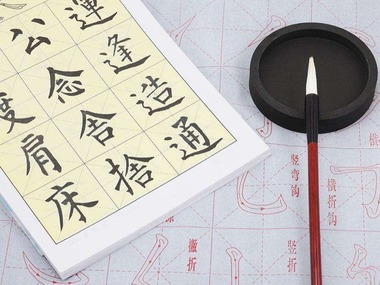 運逢造通
公念舍捨
肩床
竖弯钩
横折钩
撇折
竖折